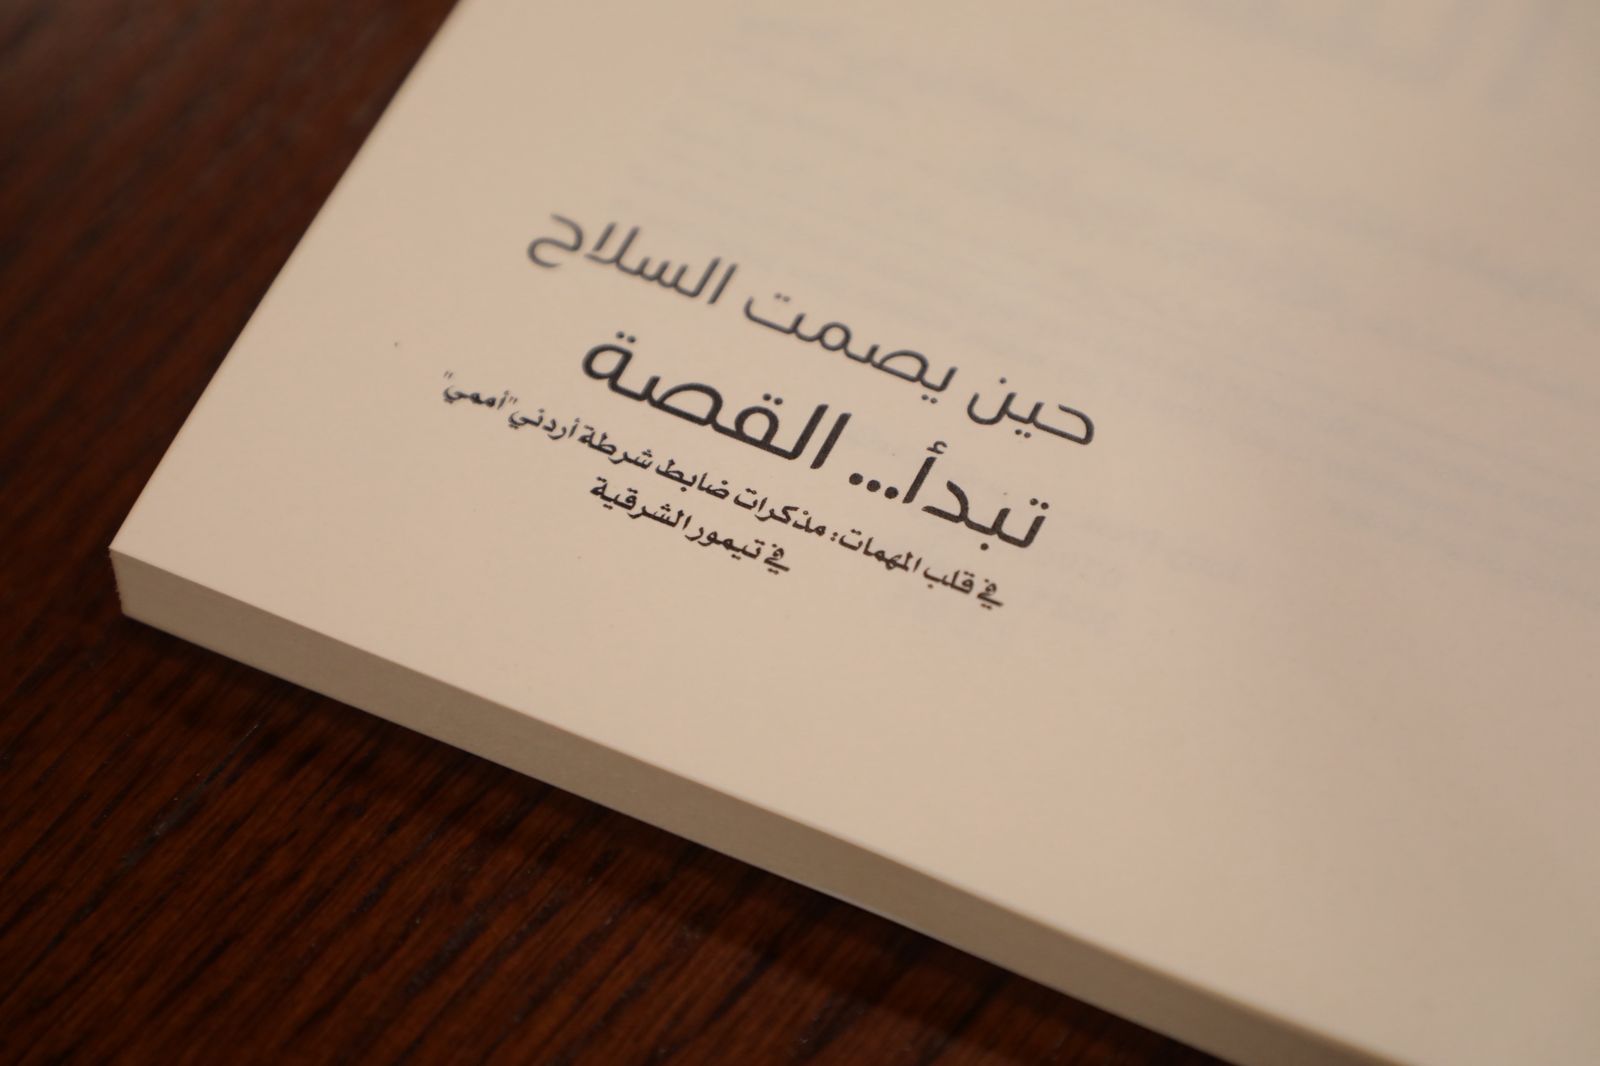 حين يصمت السلاح
تبدأ... القصة
في قلب المهمات: مذكرات ضابط شرطة أردني "أممي"
في تيمور الشرقية